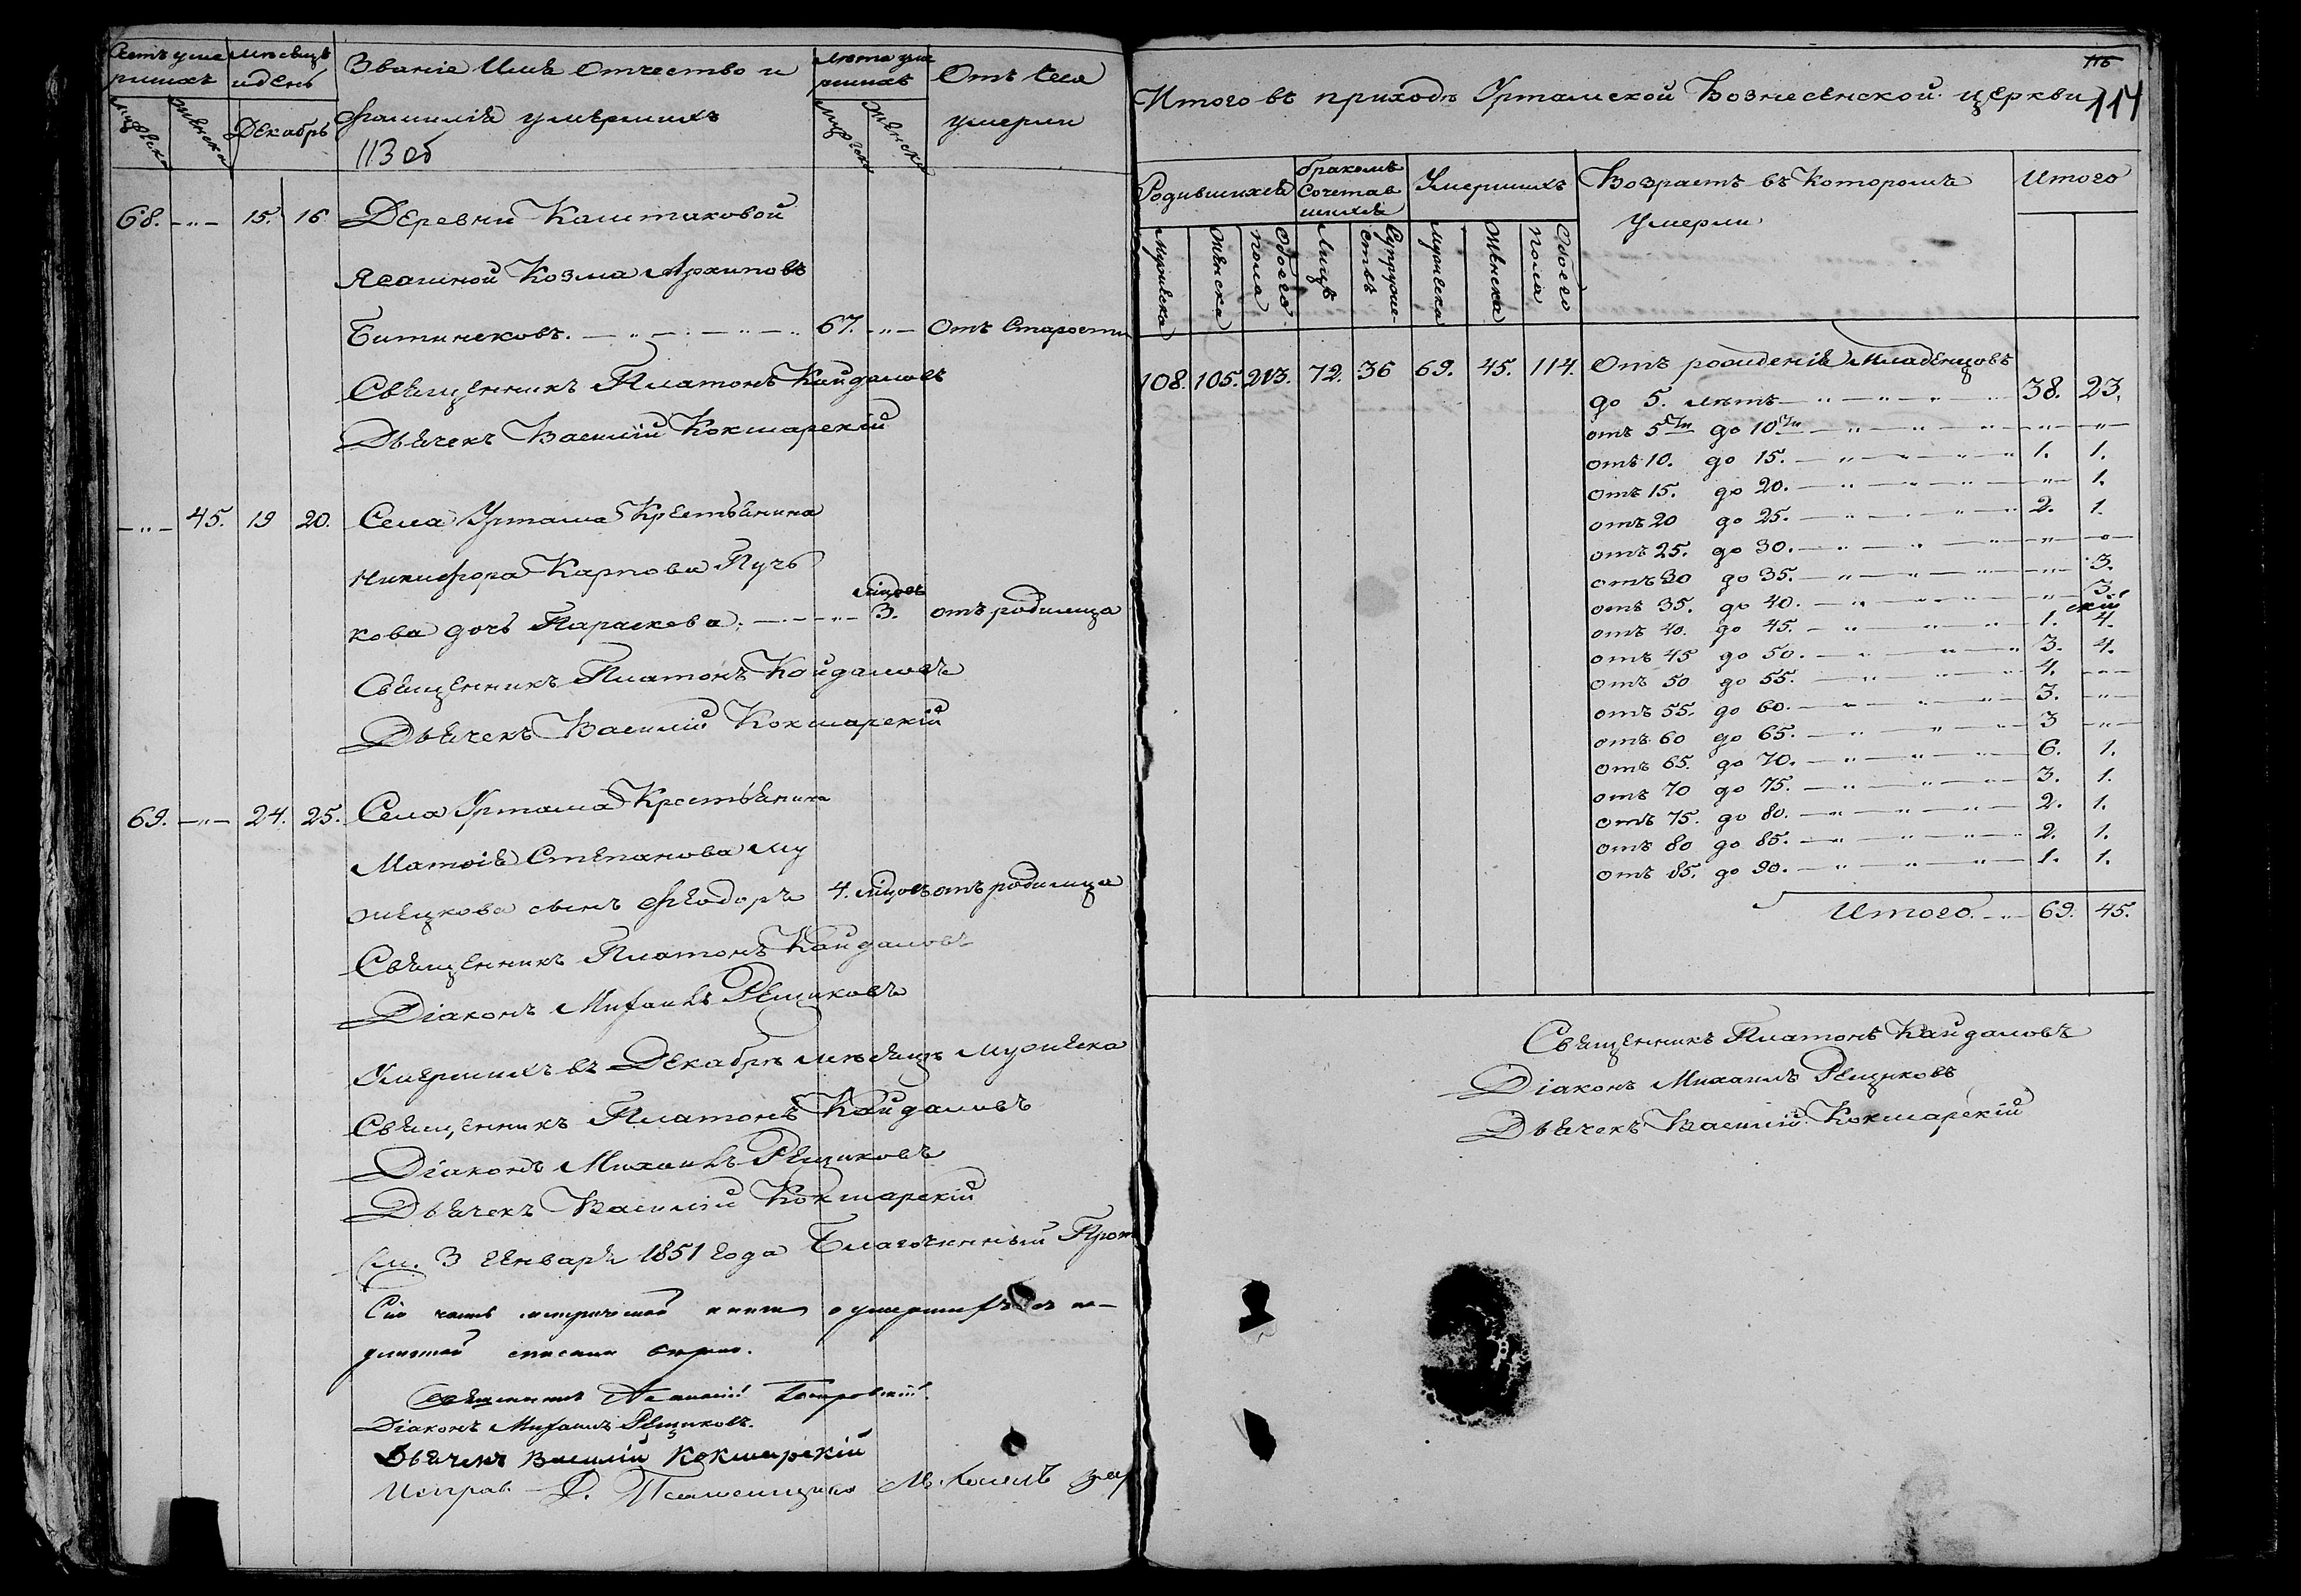 Счетъ уме
ршихъ
Мѣсяцъ
и день
Званіе Имя Отчество и
Фамилія умершихъ
Лѣта уме
ршихъ
Отъ чего
умерли
Мужеска
Женска
Декабрь
Мужеска
Женска
113 об
68. — „ — 15. 16 Деревни Калтаковой
Ясашной Козма Архиповъ
67. — „ — Отъ Старости
Священникъ Платонъ Кайдаловъ
Дьячекъ Василій Кокшарскій
— „ — 45. 19 20. Села Уртама Крестьянина
Никифора Карпова Пуч
мѣцовъ
кова дочь Параскева. — „ — 3. отъ родимца
Священникъ Платонъ Кайдаловъ
Дьячекъ Василій Кокшарскій
69. — „ — 24. 25. Села Уртама Крестьянина
Матвія Степанова Му
жецкова сынъ Феодоръ 4. мѣцовъ отъ родимца
Священникъ Платонъ Кайдаловъ
Діаконъ Михаилъ Рещиковъ
Умершихъ въ Декабрѣ мѣсяцѣ мужеска
Священникъ Платонъ Кайдаловъ
Діаконъ Михаилъ Рещиковъ
Дьячекъ Василій Кокшарскій
3 Генваря 1851 года Благочинный Прот
Сія часть метрической книги о умершихъ съ по-
длинной списана вѣрно.
Священникъ
Діаконъ Михаилъ Рещиковъ.
Дьячекъ Василій Кокшарскій
115
114
Итого въ приходѣ Уртамской Вознесенской церкви
Родившихся
бракомъ
Сочетав
шихся
Умершихъ
Возрастъ въ Которомъ
Умерли
Итого
Мужеска
Женска
Обоего
пола
Лицъ
Супруже-
ствъ
Мужеска
Женска
Обоего
пола
108. 105. 213. 72. 36 69. 45. 114. Отъ рожденія Младенцовъ
до 5. лѣтъ — „ — 38. 23.
отъ 5ти до 10ти — „ — „ — „ —
отъ 10. до 15. — „ — 1. 1.
отъ 15. до 20. — „ — „ — 1.
отъ 20 до 25. — „ — 2. 1.
отъ 25. до 30. — „ — „ — „ —
отъ 30 до 35. — „ — „ — 3.
отъ 35. до 40. — „ — „ — 3.
отъ 40. до 45. — „ — 1. 4.
отъ 45 до 50. — „ — 3. 4.
отъ 50 до 55. — „ — 4. — „ —
отъ 55. до 60. — „ — 3. — „ —
отъ 60 до 65. — „ — 3 — „ —
отъ 65. до 70. — „ — 6. 1.
отъ 70 до 75. — „ — 3. 1.
отъ 75. до 80. — „ — 2. 1.
отъ 80 до 85. — „ — 2. 1.
отъ 85. до 90. — „ — 1. 1.
Итого. — „ — 69. 45.
Священникъ Платонъ Кайдаловъ
Діаконъ Михаилъ Рещиковъ
Дьячекъ Василій Кокшарскій